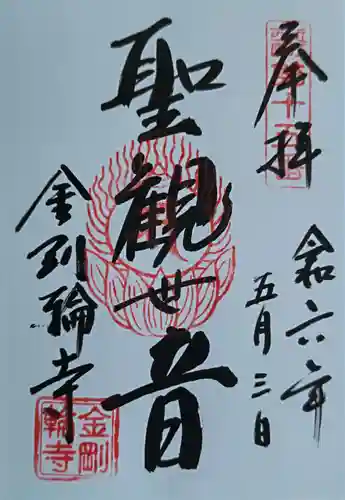 奉拝
令和六年
五月三日
聖観世音
金剛輪寺
金剛
輪寺